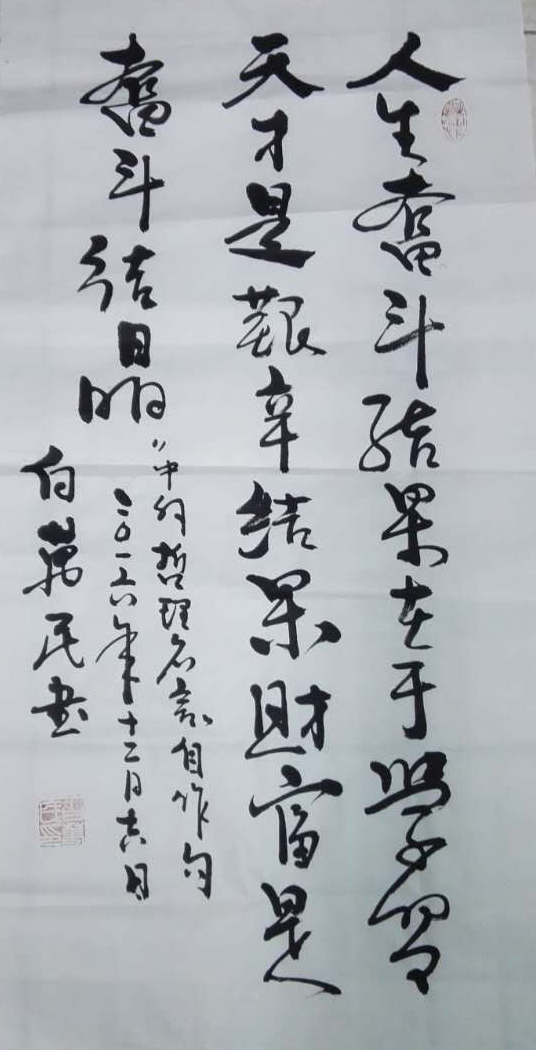 人生奋斗结果在于学习
天才是艰辛结果財富是
奋斗结晶
〃中外哲理名言自作句
二〇一六年十二月十六日
白萬民書